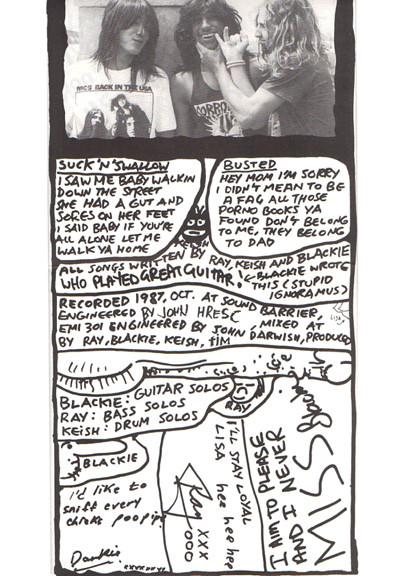 MC5 BACK IN THE USA
SUCK 'N' SWALLOW
I SAW ME BABY WALKIN
DOWN THE STREET
SHE HAD A GUT AND
SORES ON HER FEET
I SAID BABY IF YOU'RE
ALL ALONE LET ME
WALK YA HOME
BUSTED
HEY MOM I'M SORRY
I DIDN'T MEAN TO BE
A FAG ALL THOSE
PORNO BOOKS YA
FOUND DON'T BELONG
TO ME, THEY BELONG
TO DAD
ALL SONGS WRITTEN BY RAY, KEISH AND BLACKIE
WHO PLAYED GREAT GUITAR.
BLACKIE WROTE
THIS (STUPID
IGNORAMUS)
RECORDED 1987, OCT. AT SOUND BARRIER,
ENGINEERED BY JOHN HRESC
EMI 301 ENGINEERED BY JOHN DARWISH, PRODUCED
, MIXED AT
BY RAY, BLACKIE, KEISH, TIM
LISA
BLACKIE: GUITAR SOLOS
RAY: BASS SOLOS
KEISH: DRUM SOLOS
IS
RAY
BLACKIE
I'd like to
sniff every
chicks
I'LL STAY LOYAL
LISA hee hee hee
Ray xxx
ooo
I AIM TO PLEASE
AND I NEVER
MISS